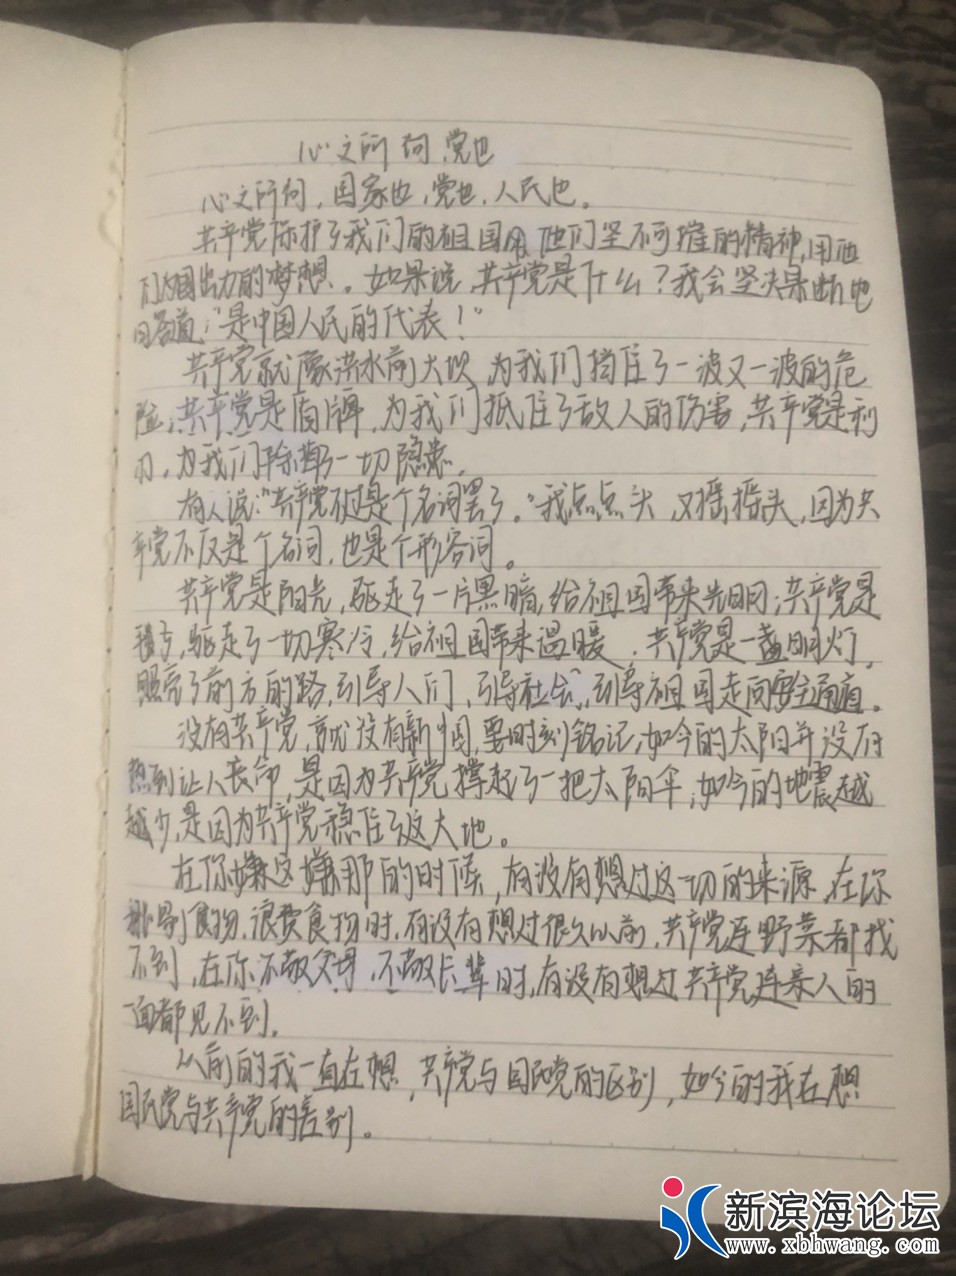 心之所向,党也
心之所向,国家也,党也,人民也。
共产党保护了我们的祖国,用他们坚不可摧的精神,用他
们为国出力的梦想。如果说,共产党是什么?我会坚决果断地
回答道:“是中国人民的代表!”
共产党就像洪水前大坝,为我们挡住了一波又一波的危
险;共产党是盾牌,为我们抵住了敌人的伤害,共产党是利
刃,为我们除掉了一切隐患。
有人说:“共产党不过是个名词罢了。”我点点头,又摇摇头,因为共
产党不仅是个名词,也是个形容词。
共产党是阳光,驱走了一片黑暗,给祖国带来光明;共产党是
驱走了一切寒冷,给祖国带来温暖,共产党是一盏明灯,
照亮了前方的路,引导人们,引导社会,引导祖国走向安全通道。
没有共产党,就没有新中国,要时刻铭记,如今的太阳并没有
热到让人丧命,是因为共产党撑起了一把太阳伞,如今的地震越
越少,是因为共产党稳住了这大地。
在你嫌这嫌那的时候,有没有想过这一切的来源,在你
挑剔食物,浪费食物时,有没有想过很久以前,共产党连野菜都找
不到,在你不敬父母,不敬长辈时,有没有想过共产党连亲人的
一面都见不到。
从前的我一直在想,共产党与国民党的区别,如今的我在想
国民党与共产党的差别。
新滨海论坛
www.xbhwang.com